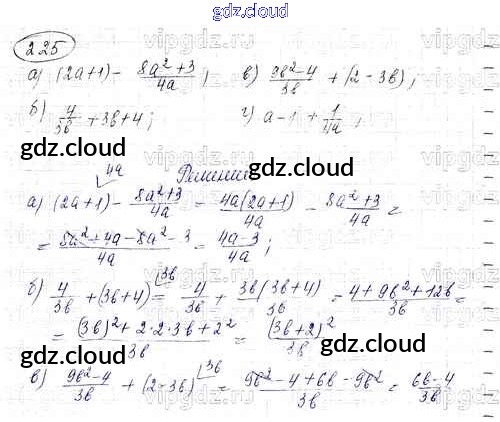 gdz.cloud
225
а) (2a+1) - (8a²+3)/4a ; в) (9b²-4)/3b + (2-3b);
б) 4/3b + 3b + 4; г) a - 1 + 1/4a ;
gdz.cloud gdz.cloud
Решение
gdz.cloud
а) (2a+1) - (8a²+3)/4a = 4a(2a+1)/4a - (8a²+3)/4a =
= (8a²+4a-8a²-3)/4a = (4a-3)/4a ;
б) 4/3b + (3b+4) = 4/3b + 3b(3b+4)/3b = (4+9b²+12b)/3b =
= ((3b)²+2·2·3b+2²)/3b = (3b+2)²/3b
gdz.cloud gdz.cloud
в) (9b²-4)/3b + (2-3b) = (9b²-4+6b-9b²)/3b = (6b-4)/3b